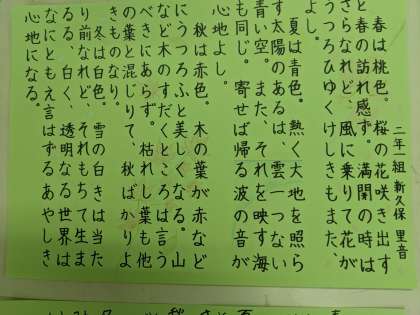 二年一組 新久保 里音
　春は桃色。桜の花咲き出す
と春の訪れ感ず。満開の時は
さらなれど、風に乗りて花が
うつろひゆくけしきもまた、
よし。
　夏は青色。熱く大地を照ら
す太陽のあるは、雲一つない
青い空。また、それを映す海
も同じ。寄せば帰る波の音が
心地よし。
　秋は赤色。木の葉が赤など
にうつろふと美しくなる。山
など木のすだくところは言う
べきにあらず。枯れし葉も他
の葉と混じりて、秋ばかりよ
きものなり。
　冬は白色。雪の白きは当た
り前なれど、それもちて生ま
るる、白く、透明なる世界は
なにともえ言はずるあやしき
心地になる。